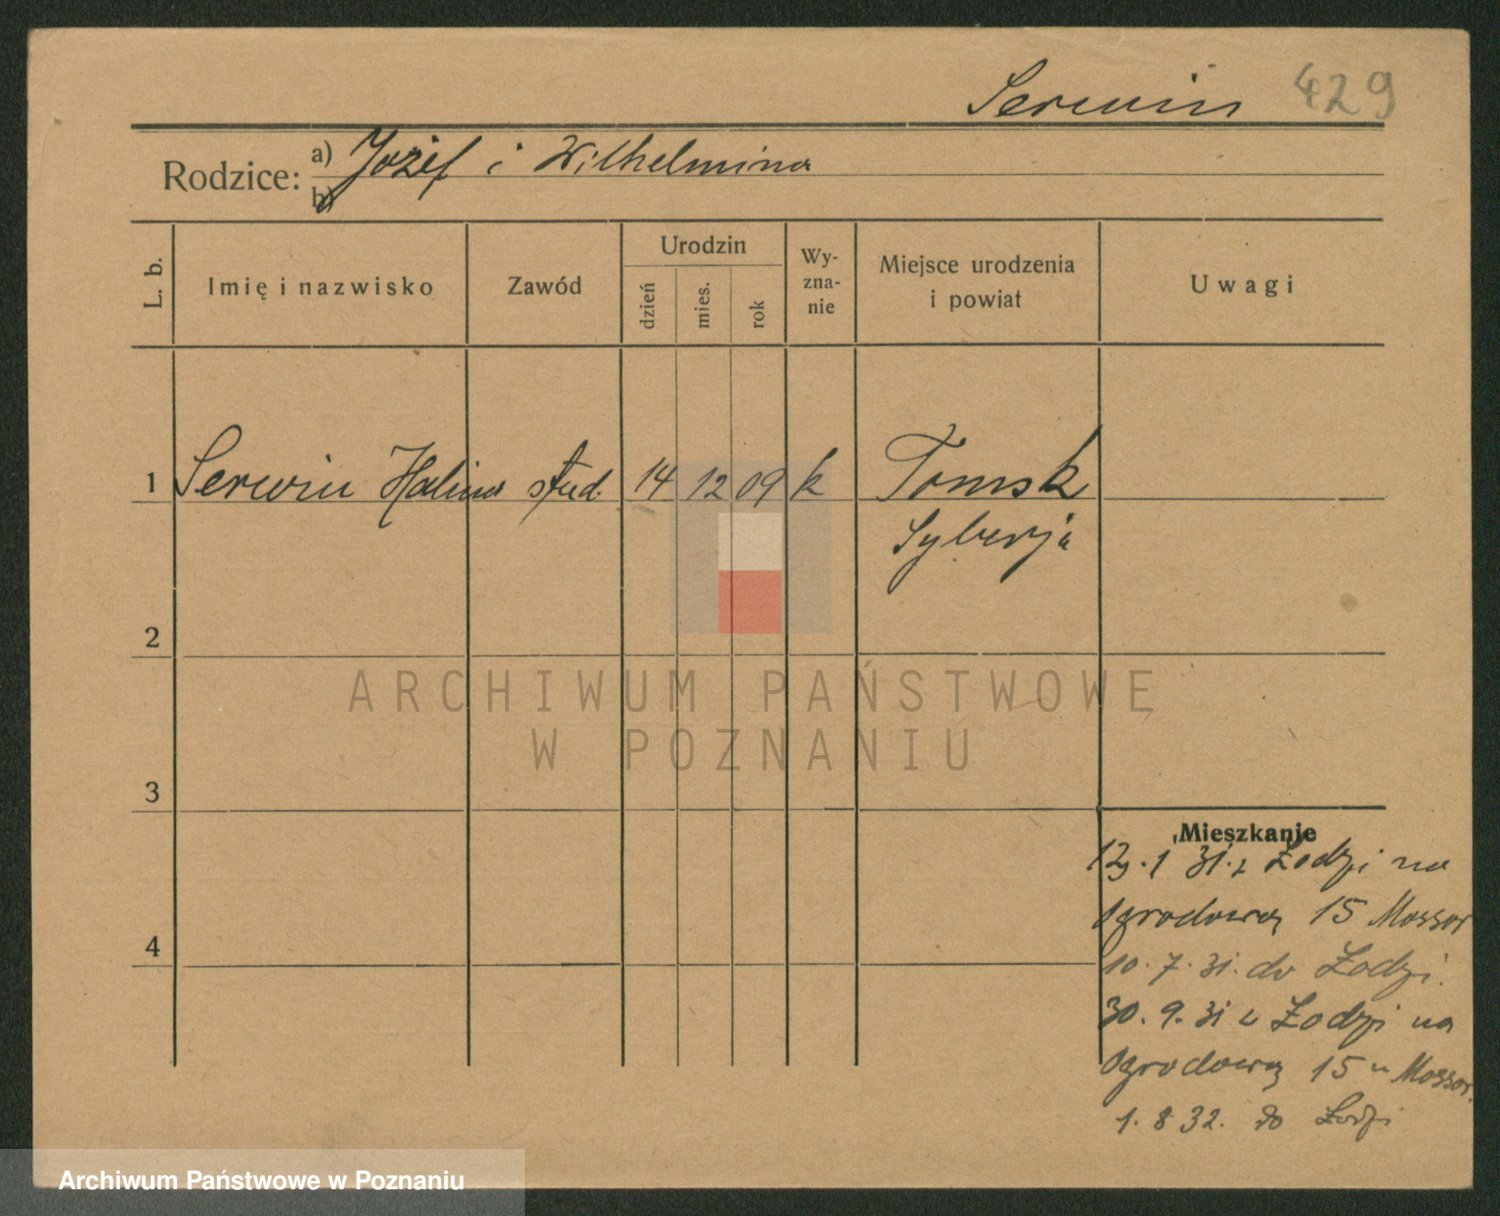 Serwin 429
Rodzice: a) Józef i Wilhelmina
b)
L. b.
Imię i nazwisko
Zawód
Urodzin
dzień
mies.
rok
Wy-
zna-
nie
Miejsce urodzenia
i powiat
Uwagi
1 Serwin Halina stud. 14 12 09 k Tomsk
Syberja
2
ARCHIWUM PAŃSTWOWE
W POZNANIU
3
Mieszkanie
1 31. z Łodzi na
Ogrodową 15 Mossor
4
10. 7. 31. do Łodzi.
30. 9. 31 z Łodzi na
Ogrodową 15 u Mossor.
1. 8 32. do Łodzi
Archiwum Państwowe w Poznaniu